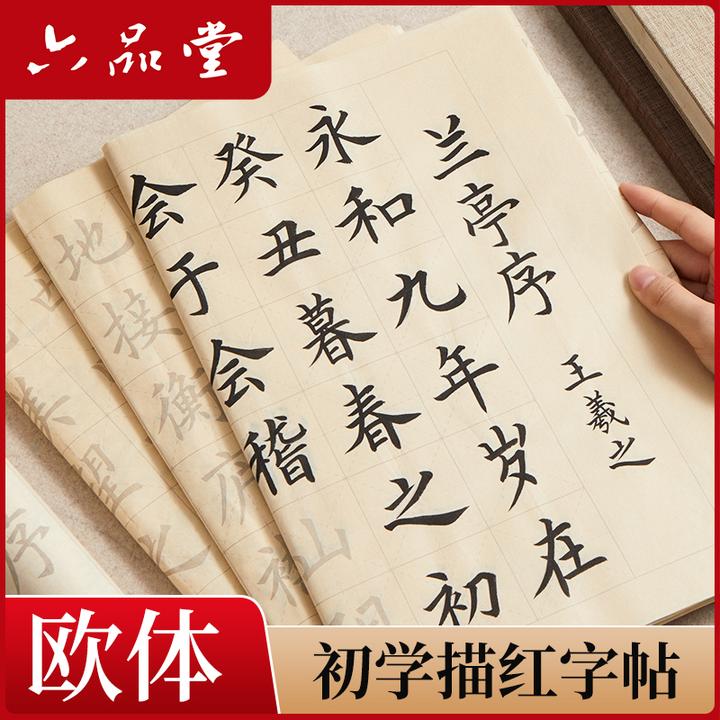 六品堂
兰亭序
王羲之
永和九年岁在
癸丑暮春之初
会于会稽
地接衡庐
望
序
欧体
初学描红字帖